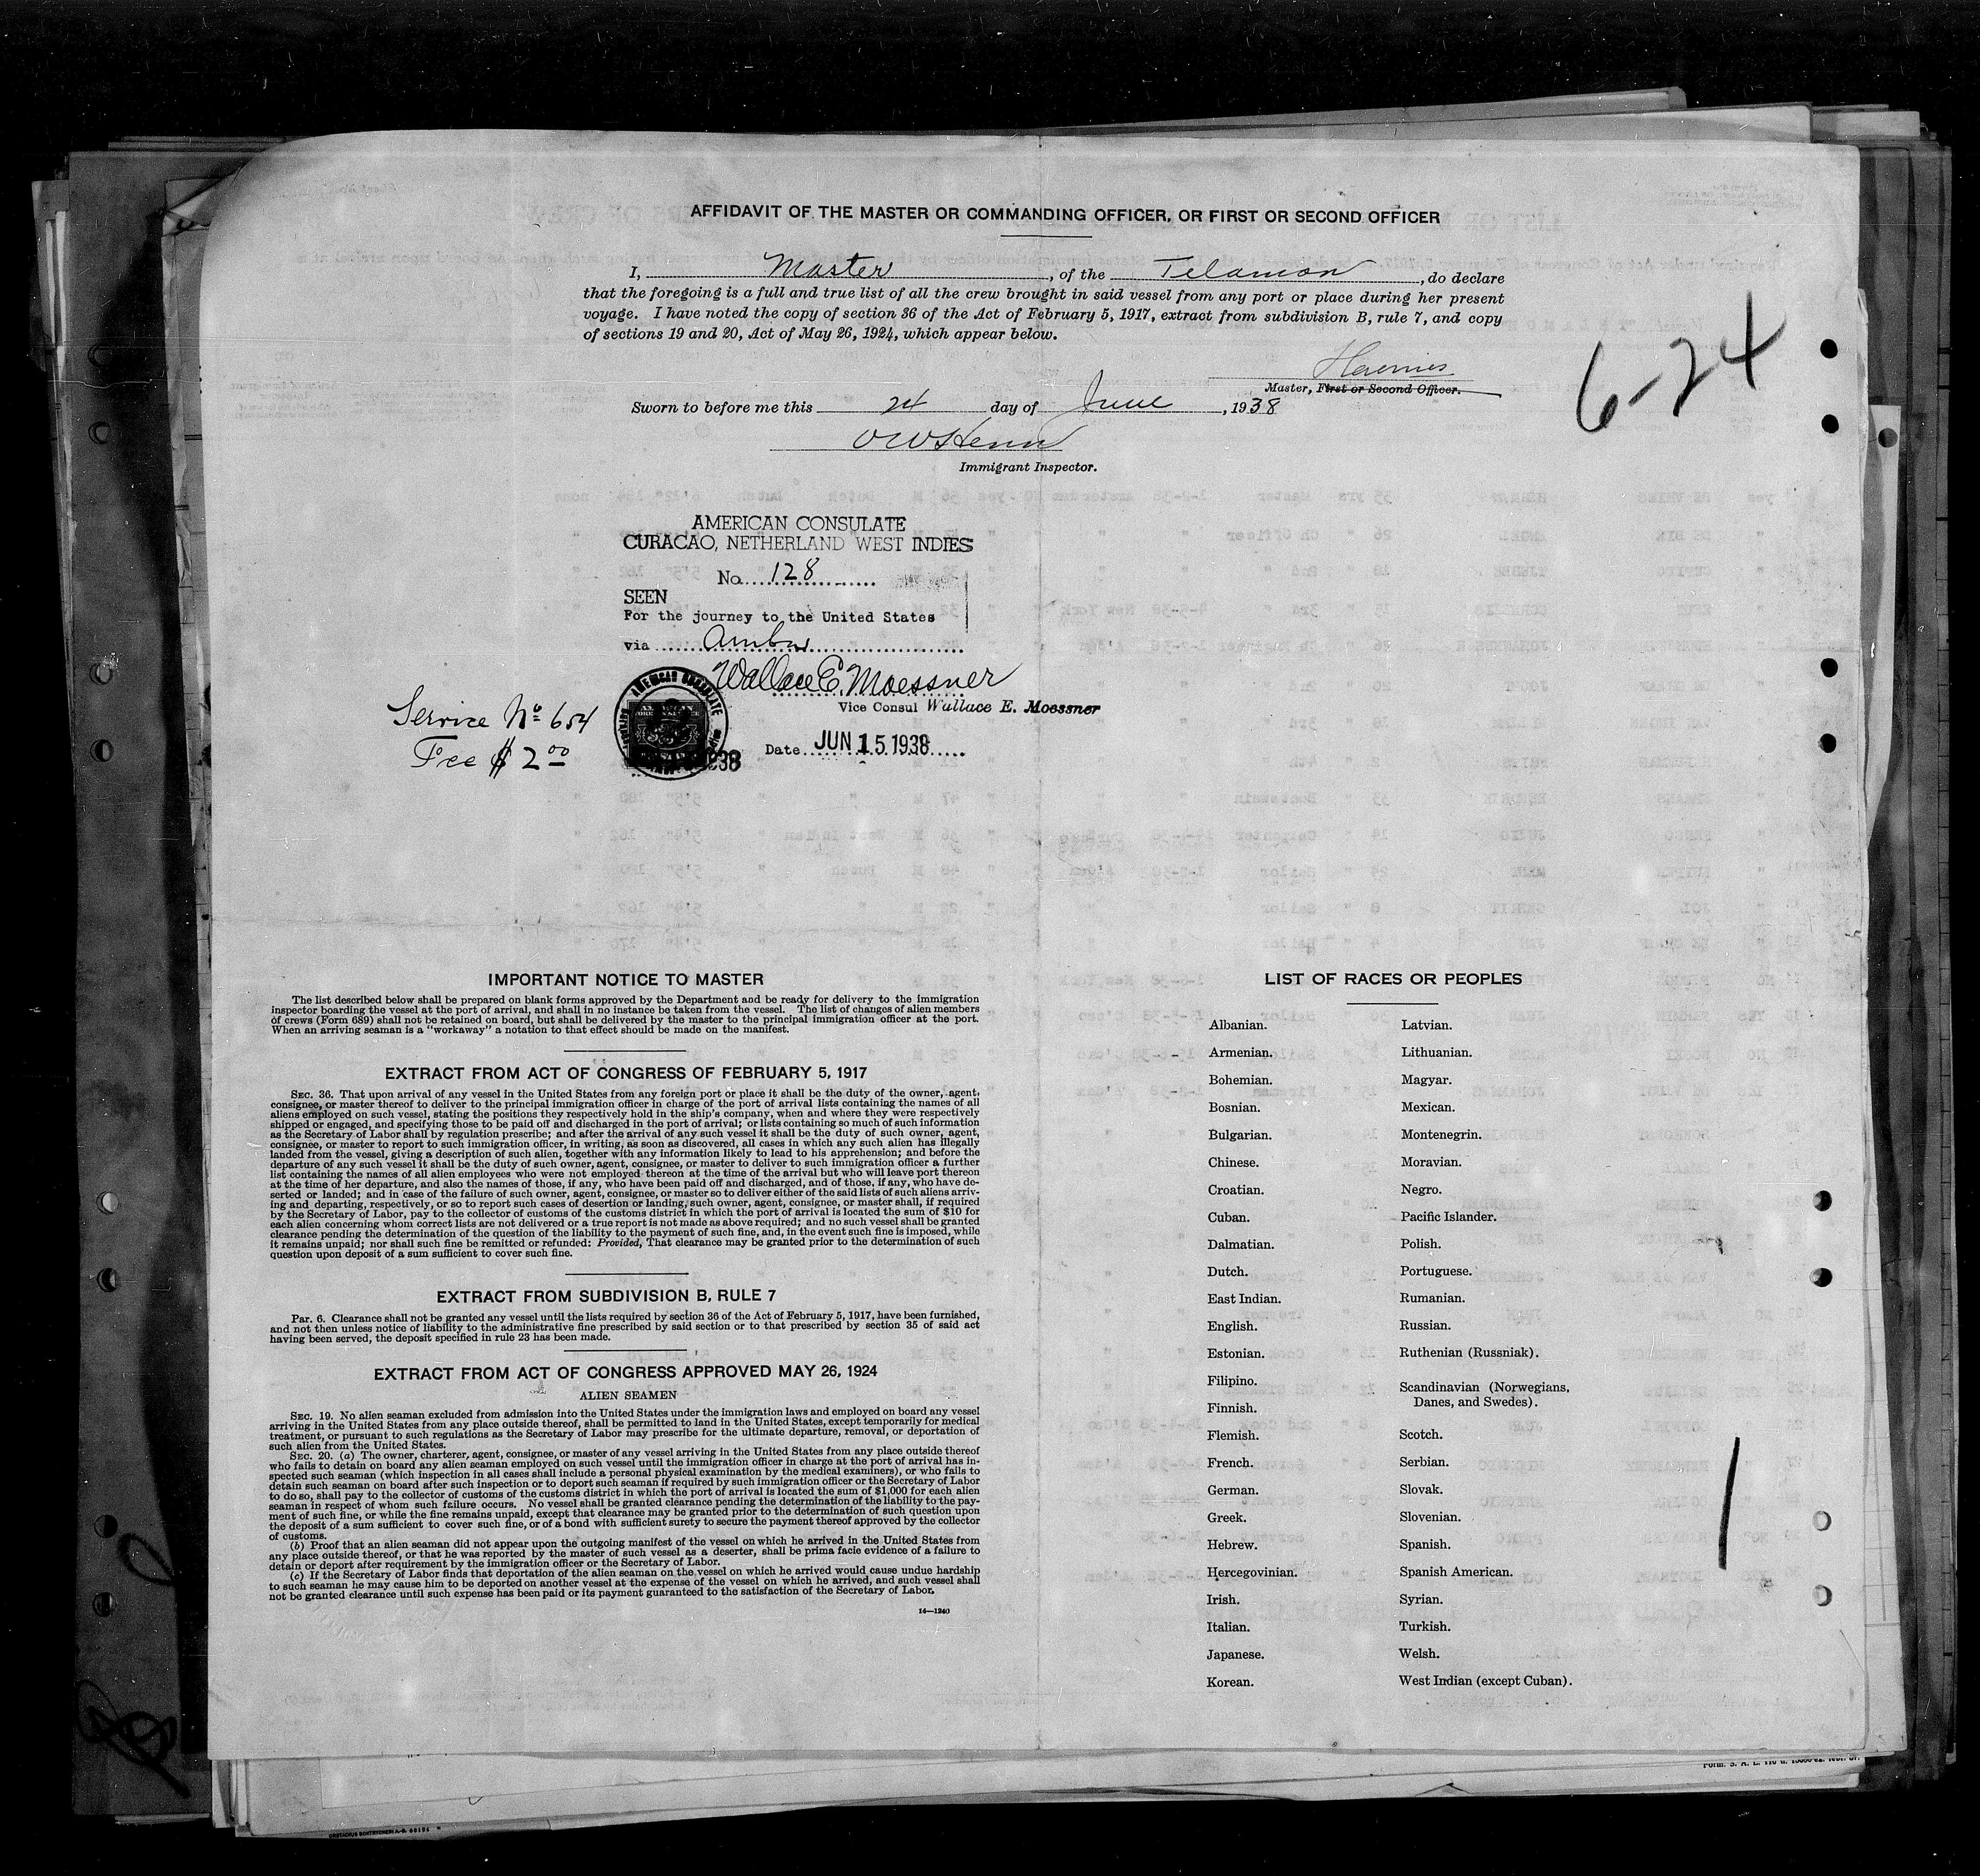 AFFIDAVIT OF THE MASTER OR COMMANDING OFFICER, OR FIRST OR SECOND OFFICER
I, Master, of the Telamon, do declare
that the foregoing is a full and true list of all the crew brought in said vessel from any port or place during her present
voyage. I have noted the copy of section 36 of the Act of February 5, 1917, extract from subdivision B, rule 7, and copy
of sections 19 and 20, Act of May 26, 1924, which appear below.
Master, First or Second Officer.
6-24
Sworn to before me this 24 day of June, 1938
Immigrant Inspector.
AMERICAN CONSULATE
CURACAO, NETHERLAND WEST INDIES
No. 128
SEEN
For the journey to the United States
via
Wallace E. Moessner
Vice Consul Wallace E. Moessner
Date JUN 15 1938
Service No 654
Fee $ 2 00
AMERICAN CONSULATE
IMPORTANT NOTICE TO MASTER
The list described below shall be prepared on blank forms approved by the Department and be ready for delivery to the immigration
inspector boarding the vessel at the port of arrival, and shall in no instance be taken from the vessel. The list of changes of alien members
of crews (Form 689) shall not be retained on board, but shall be delivered by the master to the principal immigration officer at the port.
When an arriving seaman is a "workaway" a notation to that effect should be made on the manifest.
EXTRACT FROM ACT OF CONGRESS OF FEBRUARY 5, 1917
SEC. 36. That upon arrival of any vessel in the United States from any foreign port or place it shall be the duty of the owner, agent,
consignee, or master thereof to deliver to the principal immigration officer in charge of the port of arrival lists containing the names of all
aliens employed on such vessel, stating the positions they respectively hold in the ship's company, when and where they were respectively
shipped or engaged, and specifying those to be paid off and discharged in the port of arrival; or lists containing so much of such information
as the Secretary of Labor shall by regulation prescribe; and after the arrival of any such vessel it shall be the duty of such owner, agent,
consignee, or master to report to such immigration officer, in writing, as soon as discovered, all cases in which any such alien has illegally
landed from the vessel, giving a description of such alien, together with any information likely to lead to his apprehension; and before the
departure of any such vessel it shall be the duty of such owner, agent, consignee, or master to deliver to such immigration officer a further
list containing the names of all alien employees who were not employed thereon at the time of the arrival but who will leave port thereon
at the time of her departure, and also the names of those, if any, who have been paid off and discharged, and of those, if any, who have de-
serted or landed; and in case of the failure of such owner, agent, consignee, or master so to deliver either of the said lists of such aliens arriv-
ing and departing, respectively, or so to report such cases of desertion or landing, such owner, agent, consignee, or master shall, if required
by the Secretary of Labor, pay to the collector of customs of the customs district in which the port of arrival is located the sum of $10 for
each alien concerning whom correct lists are not delivered or a true report is not made as above required; and no such vessel shall be granted
clearance pending the determination of the question of the liability to the payment of such fine, and, in the event such fine is imposed, while
it remains unpaid; nor shall such fine be remitted or refunded: Provided, That clearance may be granted prior to the determination of such
question upon deposit of a sum sufficient to cover such fine.
EXTRACT FROM SUBDIVISION B, RULE 7
Par. 6. Clearance shall not be granted any vessel until the lists required by section 36 of the Act of February 5, 1917, have been furnished,
and not then unless notice of liability to the administrative fine prescribed by said section or to that prescribed by section 35 of said act
having been served, the deposit specified in rule 23 has been made.
EXTRACT FROM ACT OF CONGRESS APPROVED MAY 26, 1924
ALIEN SEAMEN
SEC. 19. No alien seaman excluded from admission into the United States under the immigration laws and employed on board any vessel
arriving in the United States from any place outside thereof, shall be permitted to land in the United States, except temporarily for medical
treatment, or pursuant to such regulations as the Secretary of Labor may prescribe for the ultimate departure, removal, or deportation of
such alien from the United States.
SEC. 20. (a) The owner, charterer, agent, consignee, or master of any vessel arriving in the United States from any place outside thereof
who fails to detain on board any alien seaman employed on such vessel until the immigration officer in charge at the port of arrival has in-
spected such seaman (which inspection in all cases shall include a personal physical examination by the medical examiners), or who fails to
detain such seaman on board after such inspection or to deport such seaman if required by such immigration officer or the Secretary of Labor
to do so, shall pay to the collector of customs of the customs district in which the port of arrival is located the sum of $1,000 for each alien
seaman in respect of whom such failure occurs. No vessel shall be granted clearance pending the determination of the liability to the pay-
ment of such fine, or while the fine remains unpaid, except that clearance may be granted prior to the determination of such question upon
the deposit of a sum sufficient to cover such fine, or of a bond with sufficient surety to secure the payment thereof approved by the collector
of customs.
(b) Proof that an alien seaman did not appear upon the outgoing manifest of the vessel on which he arrived in the United States from
any place outside thereof, or that he was reported by the master of such vessel as a deserter, shall be prima facie evidence of a failure to
detain or deport after requirement by the immigration officer or the Secretary of Labor.
(c) If the Secretary of Labor finds that deportation of the alien seaman on the vessel on which he arrived would cause undue hardship
to such seaman he may cause him to be deported on another vessel at the expense of the vessel on which he arrived, and such vessel shall
not be granted clearance until such expense has been paid or its payment guaranteed to the satisfaction of the Secretary of Labor.
14—1240
LIST OF RACES OR PEOPLES
Albanian.
Armenian.
Bohemian.
Bosnian.
Bulgarian.
Chinese.
Croatian.
Cuban.
Dalmatian.
Dutch.
East Indian.
English.
Estonian.
Filipino.
Finnish.
Flemish.
French.
German.
Greek.
Hebrew.
Hercegovinian.
Irish.
Italian.
Japanese.
Korean.
Latvian.
Lithuanian.
Magyar.
Mexican.
Montenegrin.
Moravian.
Negro.
Pacific Islander.
Polish.
Portuguese.
Rumanian.
Russian.
Ruthenian (Russniak).
Scandinavian (Norwegians,
Danes, and Swedes).
Scotch.
Serbian.
Slovak.
Slovenian.
Spanish.
Spanish American.
Syrian.
Turkish.
Welsh.
West Indian (except Cuban).
1